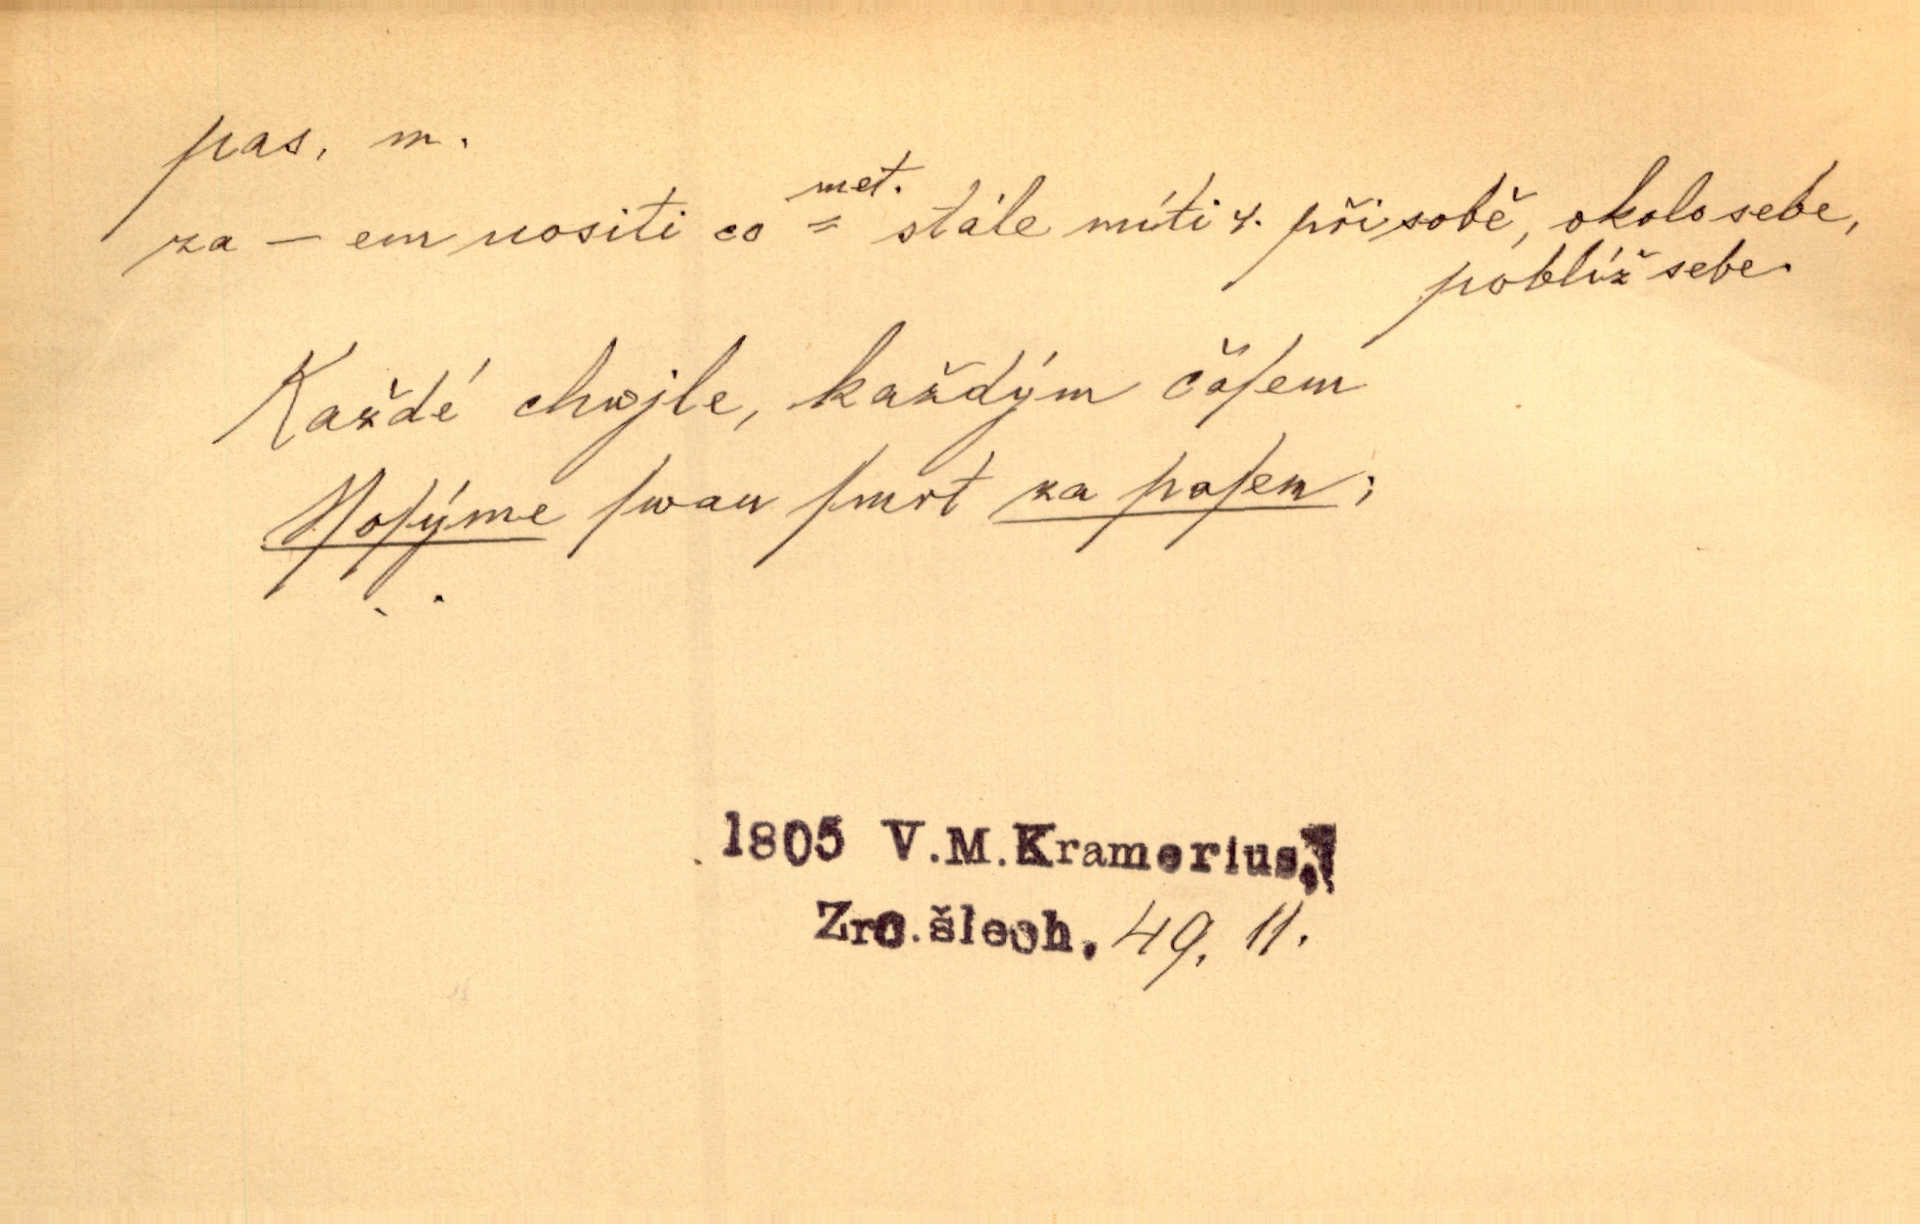 pas, m.
met.
za – em nositi co = stále míti č. při sobě, okolo sebe,
poblíž sebe.
Každé chwjle, každým čaſem
Noſýme ſwau ſmrt za paſem;
1805 V.M.Kramerius,
Zrc.šlech. 49, 11.